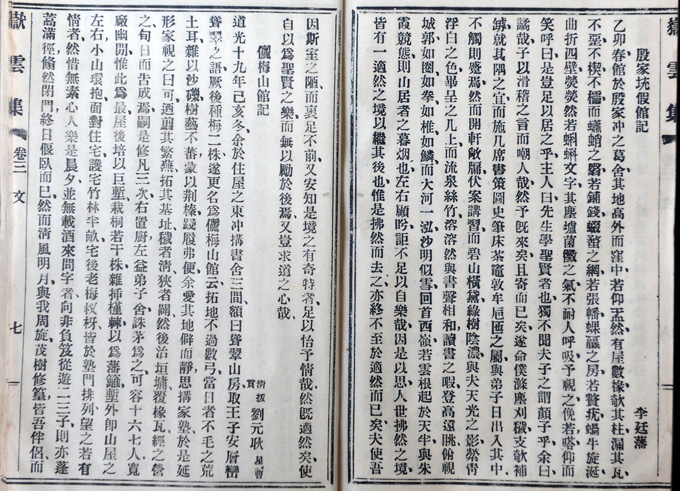 嶽雲集
殷家垙假館記
李廷藩
乙卯春館於殷家冲之葛舍其地高外而窪中若仰盂然有屋數椽欹其柱漏其瓦
不堊不楔不櫺而蠨蛸之翳若鋪錢蝃蝥之網若張幡螺蠃之房若贅疣蝸牛旋涎
曲折四壁熒熒然若蝌蚪文字其塵壒菌黴之氣不耐人呼吸予視之俛若嗒仰而
笑呼曰是豈足以居之乎主人曰先生學聖賢者也獨不聞夫子之謂顏子乎余曰
譎哉子以滑稽之言而嘲人哉然予旣來矣且寄而已矣遂命僕滌塵刈穢支欹補
罅就其隅之宜而施几席書策圖史筆床茶竈敦牟卮匜之屬與弟子日出入其中
不觸則躄焉然而開軒敞牖伏案講習而碧山橫黛綠樹陰濃與夫天光之影縈青
浮白之色畢呈之几上而流泉絲竹溶溶然與書聲相和讀書之暇登高遠眺俯視
城郭如圈如拳如椎如鱗而大河一泓沙明似雪回首西嶺若雲根起於天半與朱
霞競態則山居者之暮烟也左右顧盼詎不足以自樂哉因是以思人世拂然之境
皆有一適然之境以繼其後也惟是拂然而去之亦終不至於適然已矣夫使吾
因斯室之陋而裹足不前又安知是境之有奇特者足以怡予情哉然旣適然矣使
自以爲聖賢之樂而無以勵於後焉又豈求道之心哉
儷梅山館記
清拔貢 劉元耿 星甫
道光十九年己亥冬余於住屋之東冲搆書舍三間額曰聳翠山房取王子安層巒
聳翠之語厥後種梅二株遂更名爲儷梅山館云拓地不過數弓當日者不毛之荒
土耳雜以沙礫樹藝不蕃蒙以荆榛踐履弗便余愛其地僻而靜思搆家塾於是延
形家視之曰可迺剪其繁蕪拓其基址穢者清狹者闢然後治垣墉覆椽瓦經之營
之旬日而告成焉嗣是修凡三次右置廚左益弟子舍誅茅爲之可容十六七人寬
廠幽閒惟此爲最屋後培以巨塹栽桐若干株雜揷槿棘以爲藩籬塹外卽山屋之
左右小山環抱面對住宅護宅竹林半畝宅後老梅杈枒皆於塾門排列望之若有
情者然惜無素心人樂是晨夕並無載酒來問字者向非負笈從遊二三子則亦蓬
蒿滿徑翛然閉門終日偃臥而已然而清風明月與我周旋茂樹修篁皆吾伴侶而
嶽雲集 卷三 文 七